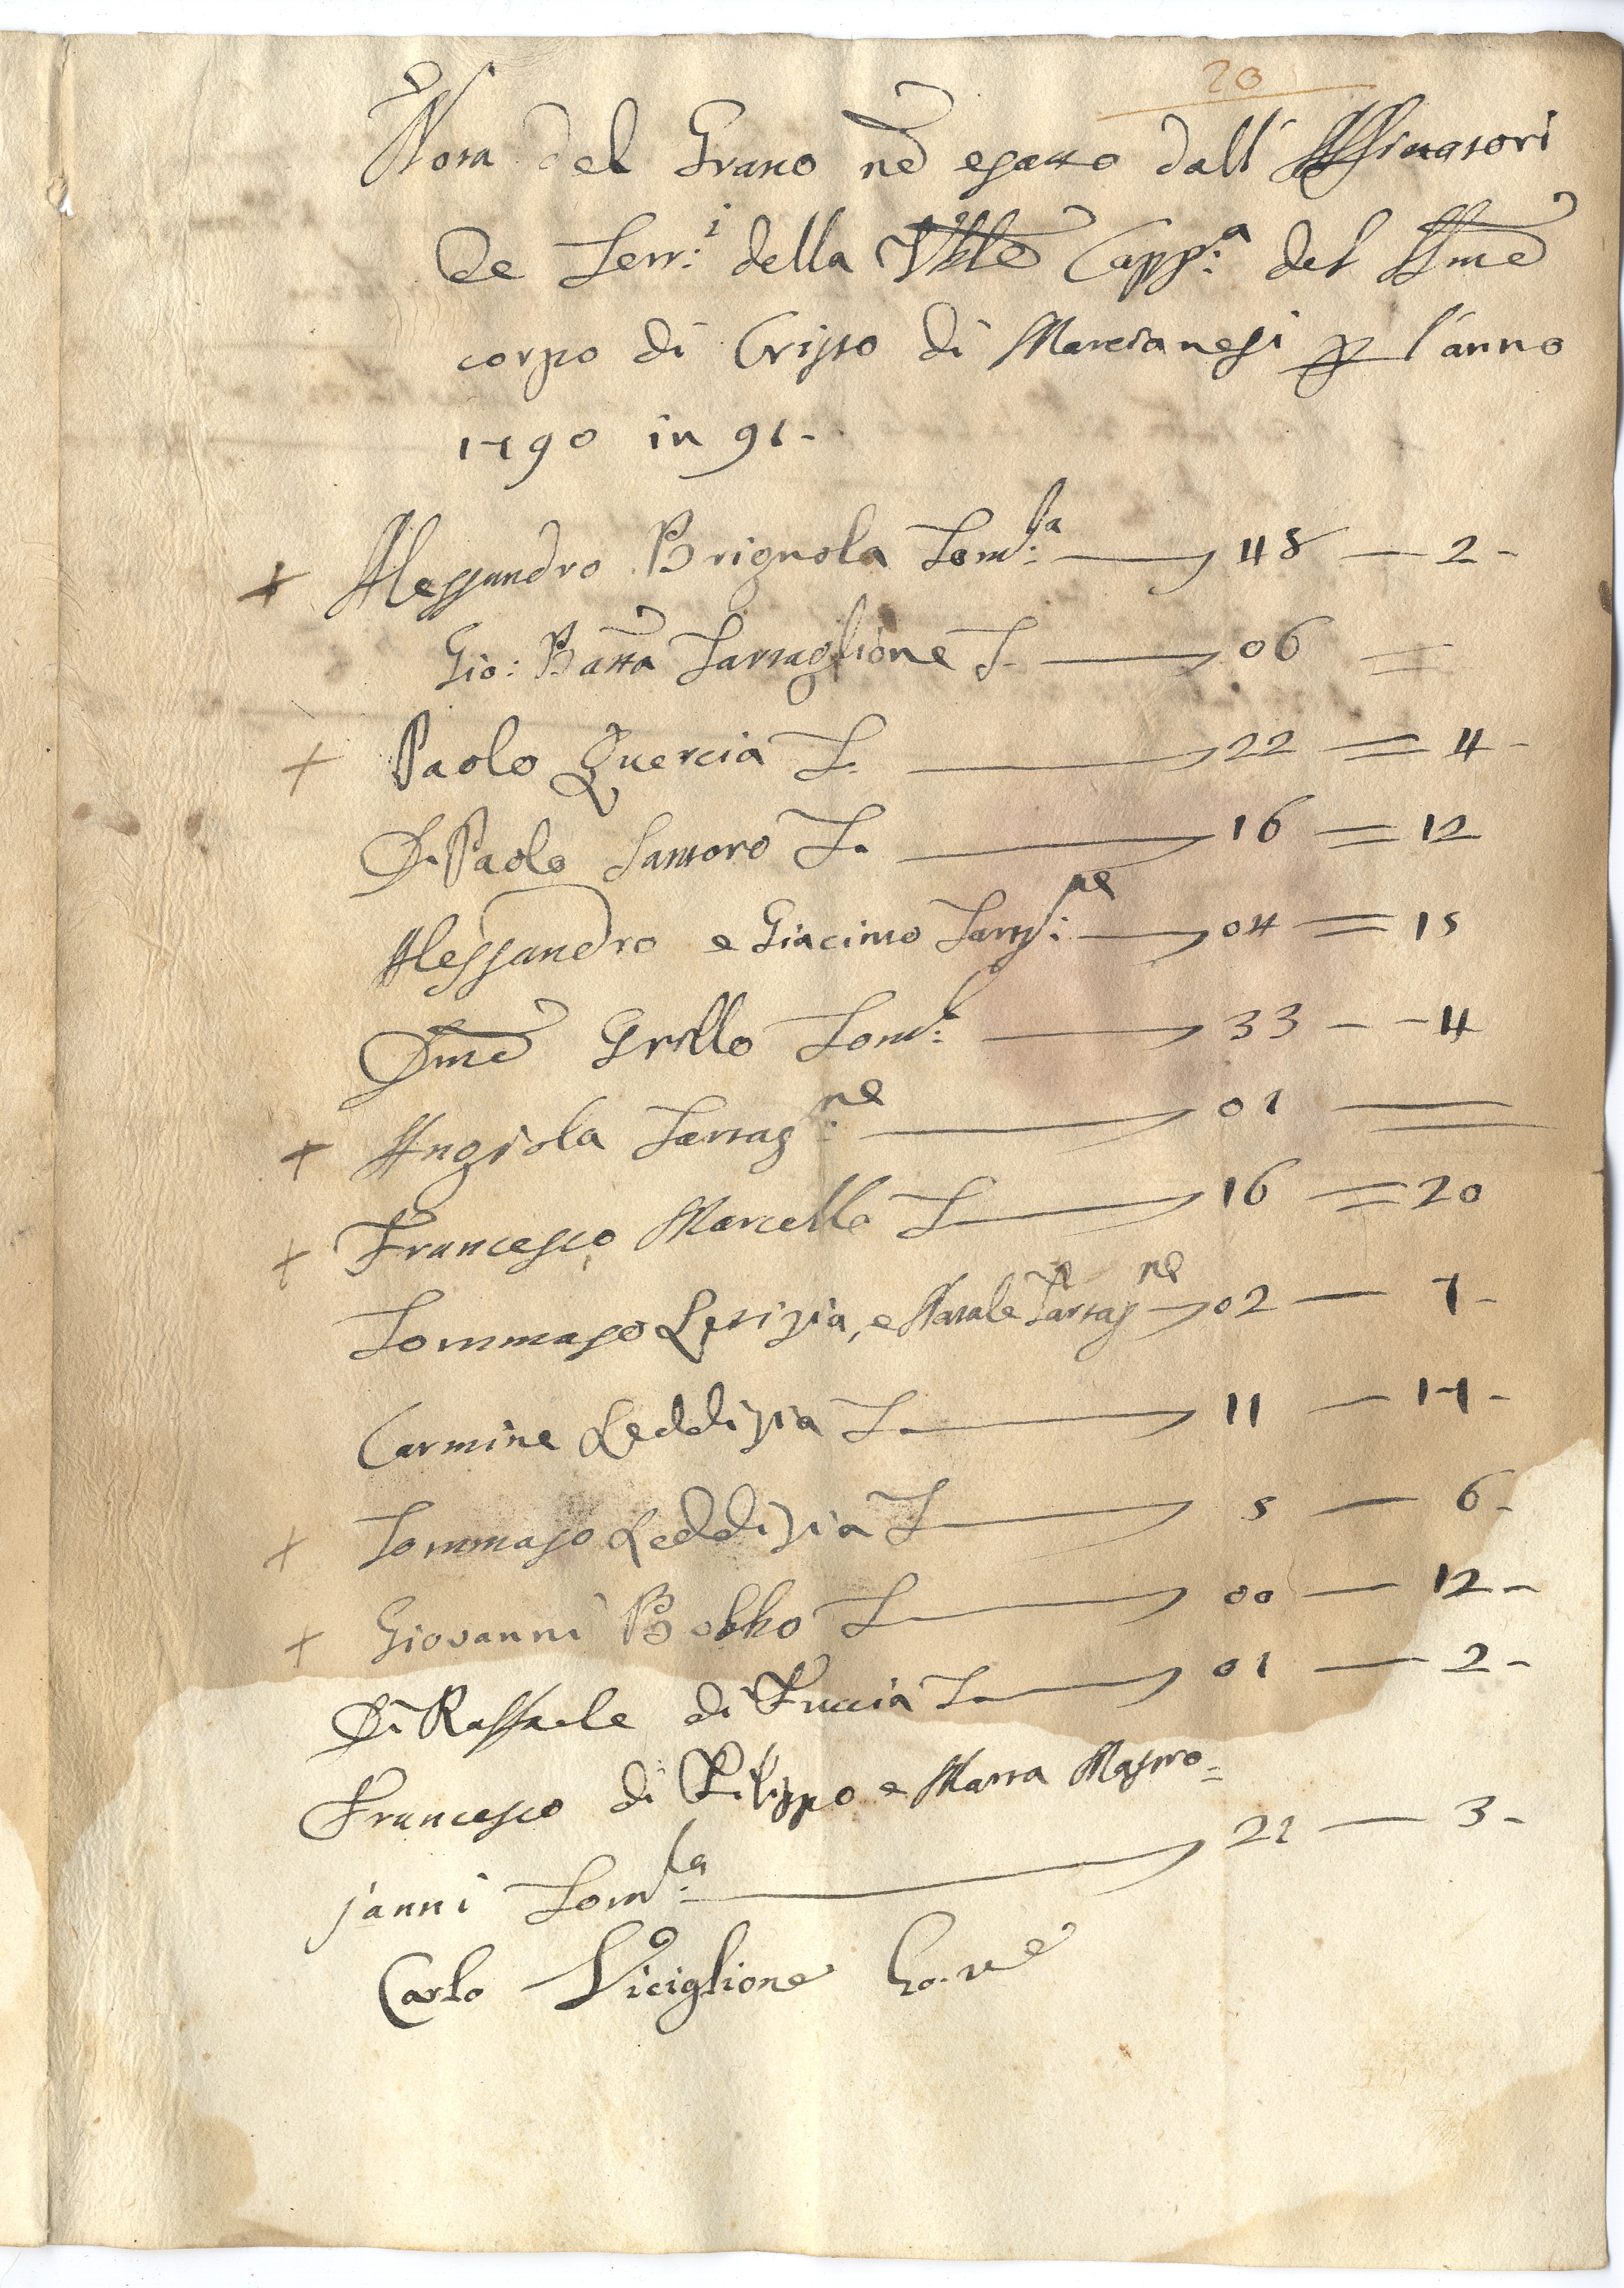 20
Nota del Grano nē esatto dall' Affittatori
De Terr:i della Vble Capp:a del SSmo
corpo di Cristo di Marcianesi p l'anno
1790 in 91-
+ Alessandro Brignola Tom:la 48 — 2-
Gio: Batta Tartaglione T. 06 =
+ Paolo Quercia T. 22 = 4-
D. Paolo Santoro T. 16 = 12
Alessandro e Giacinto Tartg:ne 04 = 15
Dmco Grillo Tom:l 33 - - 4
+ Angiola Tartag:ne 01 =
+ Francesco Marcello T. 16 = 20
Tommaso Letizia, e Natale Tartag:ne 02 — 7-
Carmine Leddizia T. 11 — 17-
+ Tommaso Leddizia T. 5 — 6-
+ Giovanni Bobbo T. 00 — 12-
D: Raffaele di Fuccia T. 01 — 2-
Francesco di Filippo e Marta Mastro=
janni Tom:la 21 — 3-
Carlo Viciglione